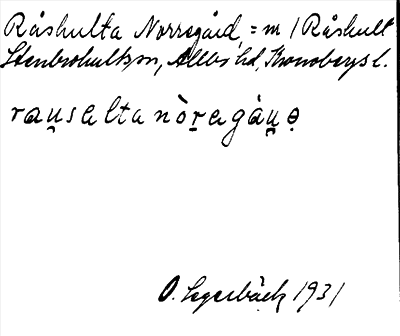 Råshulta Norregård, = m / Råshult
Stenbrohults sn, Allbo hd, Kronobergs l.
rau̯salta nòṟagàu̯ə
O. Lagerbäck 1931